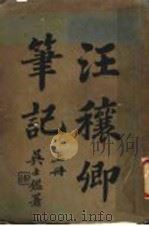 汪穰卿
筆記
冊
吳士鑑署